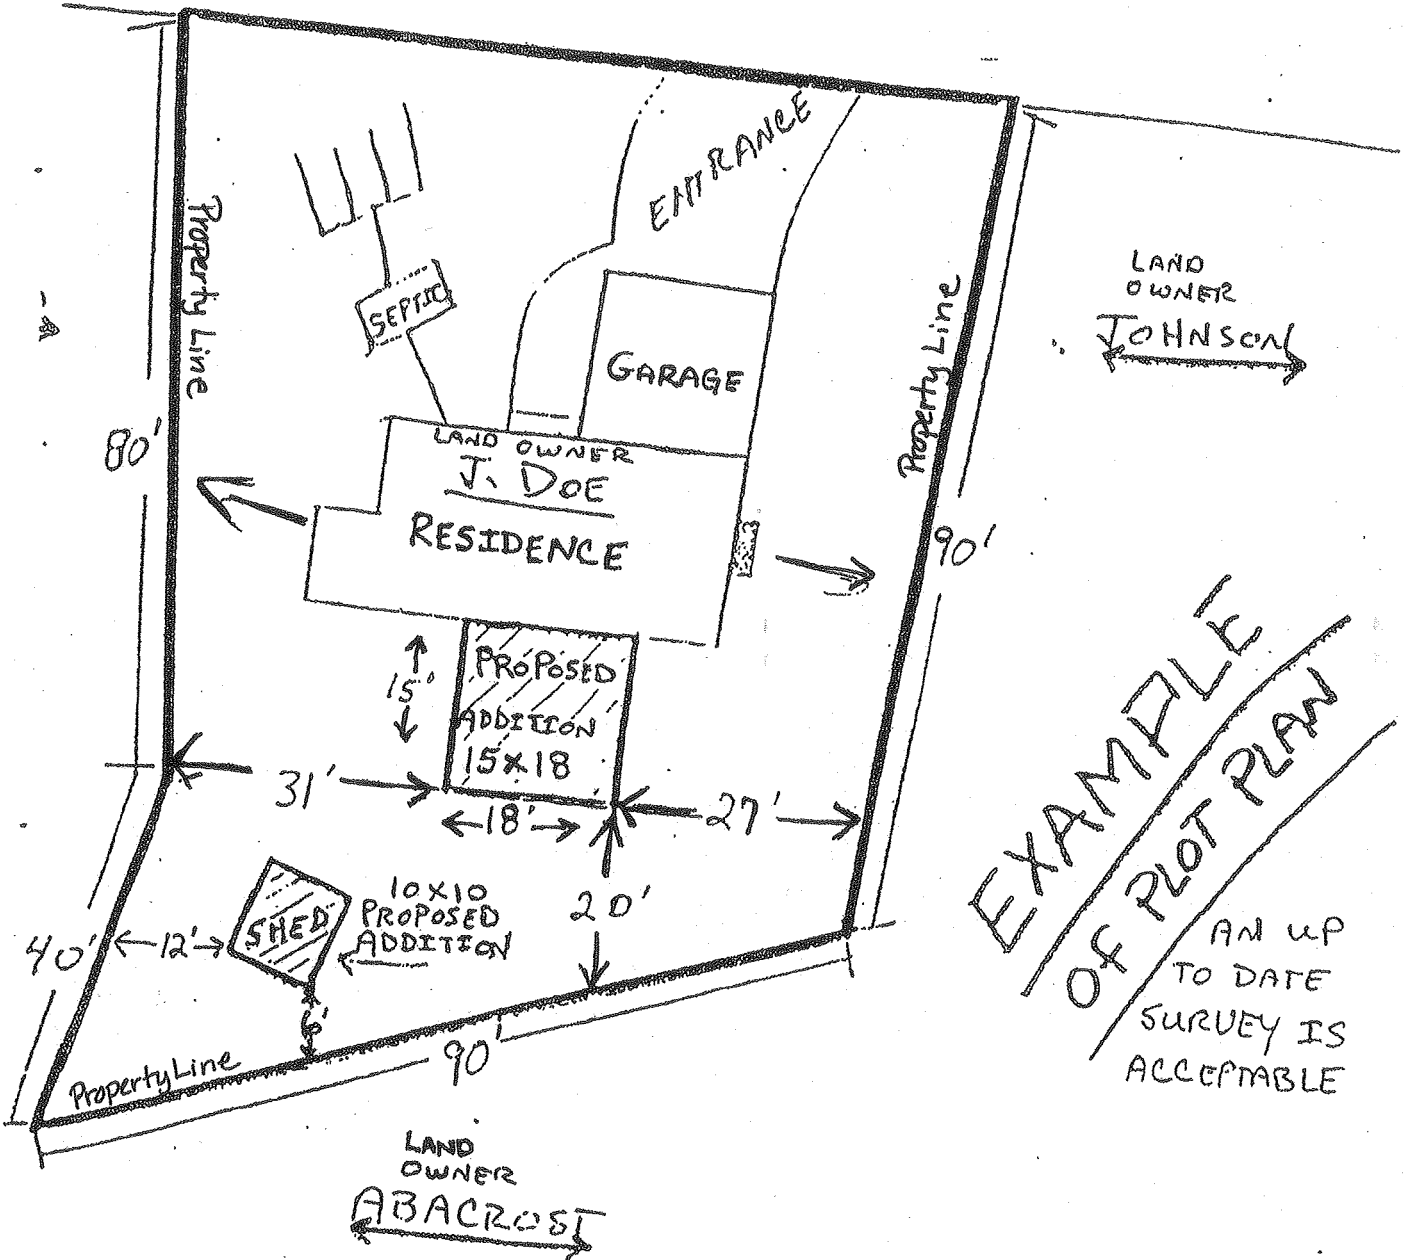 ENTRANCE
Property Line
SEPTIC
GARAGE
Property Line
LAND
OWNER
JOHNSON
80'
LAND OWNER
J. DOE
RESIDENCE
90'
15'
PROPOSED
ADDITION
15x18
31'
18'
27'
20'
40'
12'
SHED
10x10
PROPOSED
ADDITION
6'
Property Line
90'
LAND
OWNER
ABACROST
EXAMPLE
OF PLOT PLAN
AN UP
TO DATE
SURVEY IS
ACCEPTABLE